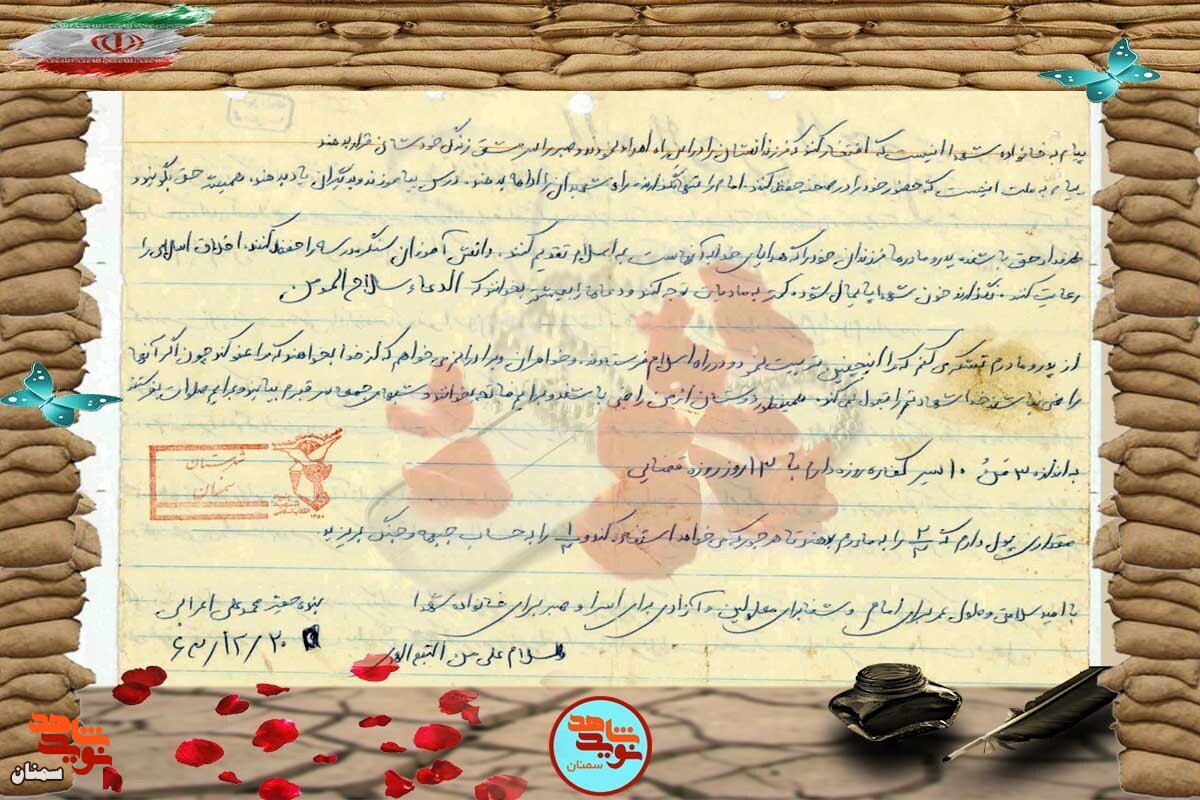 پیام به خانواده شهدا اینست که افتخار کنند که فرزندانشان را در این راه اهداء نمودند و صبر را سرمشق زندگی خودشان قرار بدهند
پیام به ملت اینست که حضور خود را در صحنه حفظ کنند. امام را تنها نگذارند. راه شهیدان را ادامه بدهند. درس بیاموزند و بدیگران یاد بدهند. همیشه حق بگویند و
طرفدار حق باشند پدر و مادرها فرزندان خود را که هدایای خدا به آنهاست به اسلام تقدیم کنند. دانش آموزان سنگر مدرسه را حفظ کنند. اخلاق اسلامی را
رعایت کنند. نگذارند خون شهدا پایمال شود. کمتر به مادیات توجه کنند و دعاها را بیشتر بخوانند که الدعاء سلاح المومن
از پدر و مادرم تشکر می کنم که مرا اینچنین تربیت نمود و در راه اسلام فرستادند. و خواهران و برادرانم می خواهم که از خدا بخواهند که مرا عفو کند چون اگر آنها
راضی باشند خدا شهادتم را قبول می کند. همینطور دوستان از من راضی باشند و برایم فاتحه بخوانند و شبهای جمعه سر قبرم بیایند و برایم صلوات بفرستند
به اندازه ۳ من و ۱۰ سیر کفاره روزه دارم با ۱۳ روز روزه قضایی
مقداری پول دارم که را به مادرم بدهند تا هر جور که می خواهد استفاده کند و را به حساب جبهه و جنگ بریزید
با امید سلامتی و طول عمر برای امام و شفا برای معلولین و آزادی برای اسرا و صبر برای خانواده شهدا
والسلام علی من اتبع الهدی
بنده حقیر محمد علی اعرابی
۶۳/۱۲/۲۰
شهرستان
سمنان
نوید شاهد
سمنان
نوید شاهد
سمنان